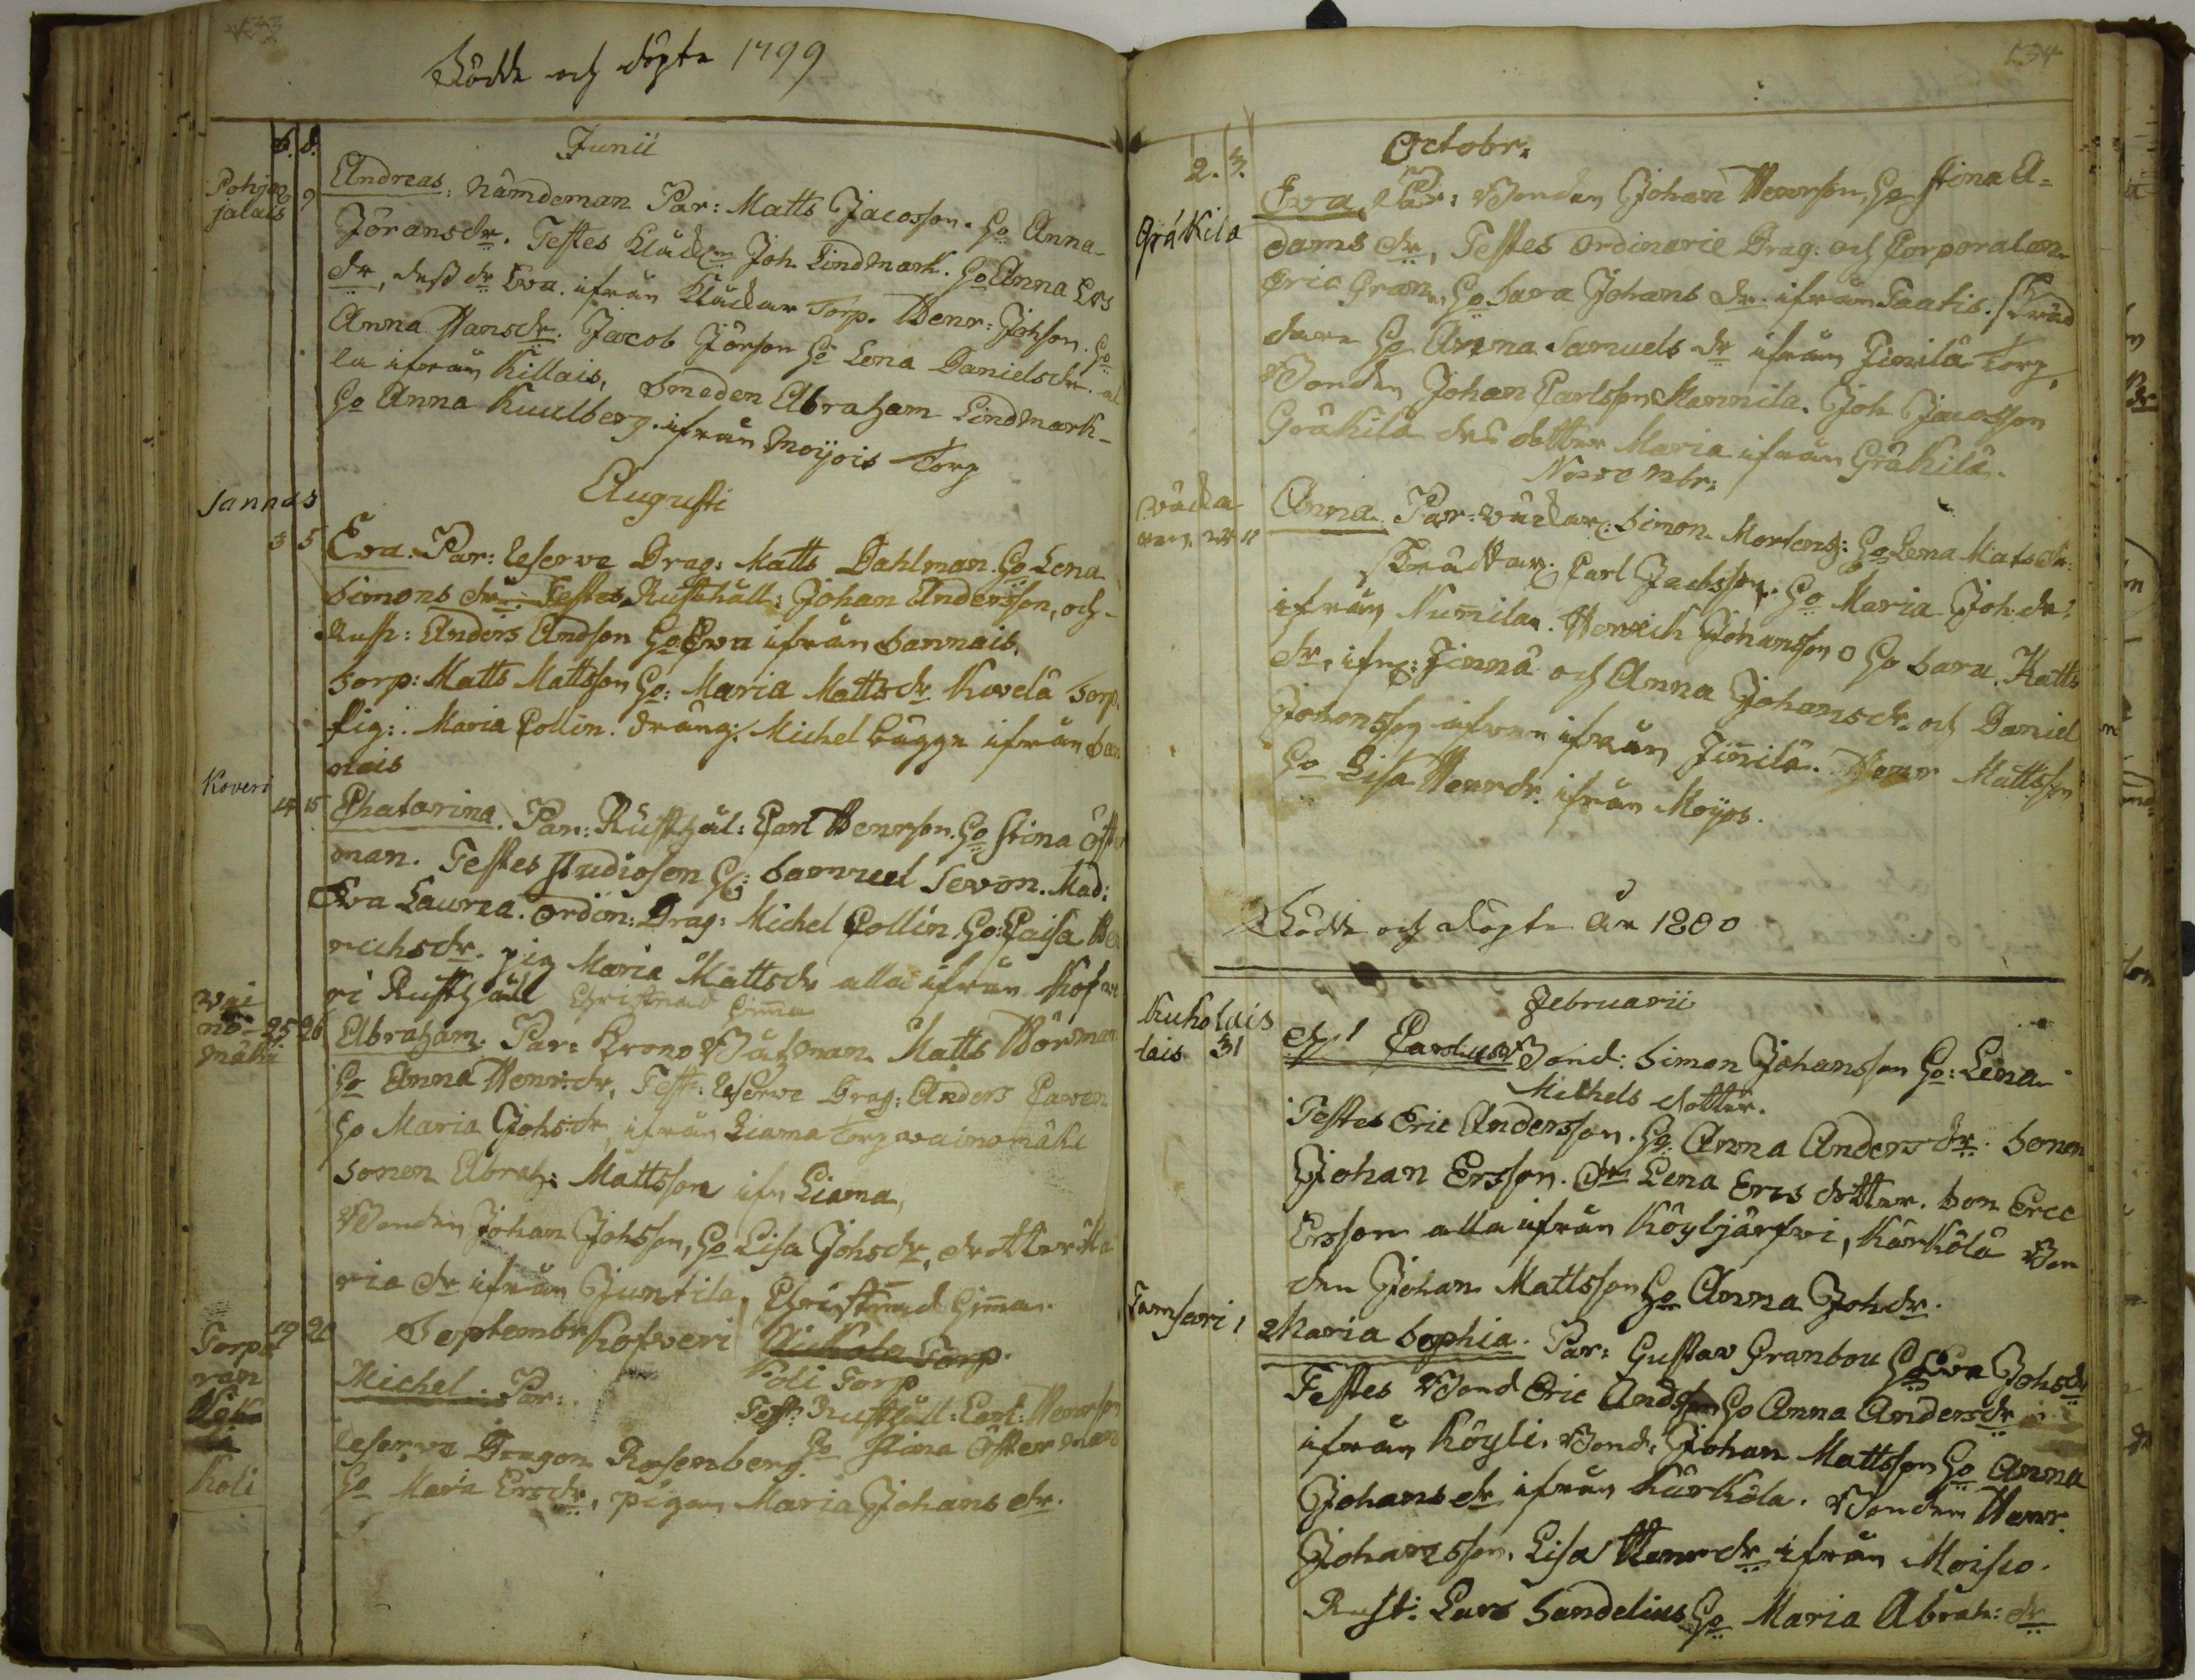 133
Födde och döpte 1799
f. d.
Junii
Pohja
jalais
8 9
Andreas. Nämdeman Par: Matts Jacosson. Ho Anna
Jöransdr. Testes Klåck: Joh. Lindmark. Ho Anna Ers
dr, dess dr Eva. ifrån Klåckar Torp. Henr: Johson. Ho
Anna Hansdr. Jacob Jörson Ho Lena Danielsdr. al
la ifrån Killais, Smeden Abraham Lindmark
Ho Anna Kuulberg. ifrån Moijois Torp
Augusti
Sannas
3 5
Eva. Par: Reserve Drag: Matts Dahlman. Ho Lena
Simons dr. Testes Rusthåll: Johan Andersson, och
Rust: Anders Andson Ho Eva ifrån Sannais.
Torp: Matts Mattsson Ho: Maria Mattsdr Torp.
Pig: Maria Collin. Dräng: Michel Bågge ifrån San
nais
Koveri
14 15
Chatarina. Par: Rusthål: Carl Henrson. Ho Stina Öster
man. Testes studiosen H: Samuel Tevon. Mad:
Eva Laurea. Ordin: Drag: Michel Collin. Ho: Caisa He
richsdr. pig Maria Mattsdr alla ifrån Kofwe
ri Rusthåll Christinad
Wäi
nö-
mäki
25 26
Abraham. Par: Krono Båtsman. Matts Norman
Ho Anna Henr:dr, Test: Reserve Drag: Anders
Ho Maria Johsdr, ifrån Liama Torp wainomäki
Sonen Abrah: Mattsson ifn Liama,
Bonden Johan Johsson, Ho Lisa Johsdr, dotter Ma
ria dr ifrån Juntila, Christinad
Septembr Kofweri
Torp
Torpa
ran
Koli
19 20
Koli Torp
Michel. Par:
Test: Rusthåll: Carl: Henrson
Reserve Dragon Rosenberg. Ho Stina Österman
Ho Maria Ersdr, pigan Maria Johans dr.
134
Octobr:
2. 3.
Gråkila
Eva, Par: Bonden Johan Henrson, Ho Stina A=
dams dr, Testes ordinarie Drag: och Corporalen
Eric Gran, Ho Sara Johans dr. ifrån Taatis. Skräd
daren Ho Anna Samuels dr ifrån Jimilä Torp,
Bonden Johan Carlsson Mannila. Joh Jacosson
Gråkila des dotter Maria ifrån Gråkilä.
Novembr:
Anna. Par: Simon Mortens: Ho Lena Matsdr.
Skräddar. Carl Jacobsson. Ho Maria Joh:dr:
ifrån Numila. Henrich Johansson o Ho Sara. Matts
dr, ifn: Jinnä och Anna Johansdr. och Daniel
Johansson ifrån Jinilä. Henr Mattsson
Ho Lisa Henrdr. ifrån Moijos.
Födde och döpte år 1800
Februarii
Kuholais
lais 31
d 1 Carolus Bond: Simon Johansson Ho: Lena
Michels dotter.
Testes Eric Andersson. Ho: Anna Andersdr. Sonen
Johan Ersson. dr Lena Ers dotter. Son Eric
Ersson alla ifrån Köyljärfwi, Kärkölä Bon
den Johan Mattsson Ho Anna Johdr.
Tamsari 1
2 Maria Sophia. Par: Gustav Granbou Ho Eva Johsdr
Testes Bond Eric Andsson Ho Anna Andersdr
ifrån Köyli. Bond: Johan Mattsson Ho Anna
Johansdr ifrån Kärköla. Bonden Henr.
Johansson. Lisa Henrdr ifrån Moisio.
Rust: Lars Sandelius Ho Maria Abrah: dr